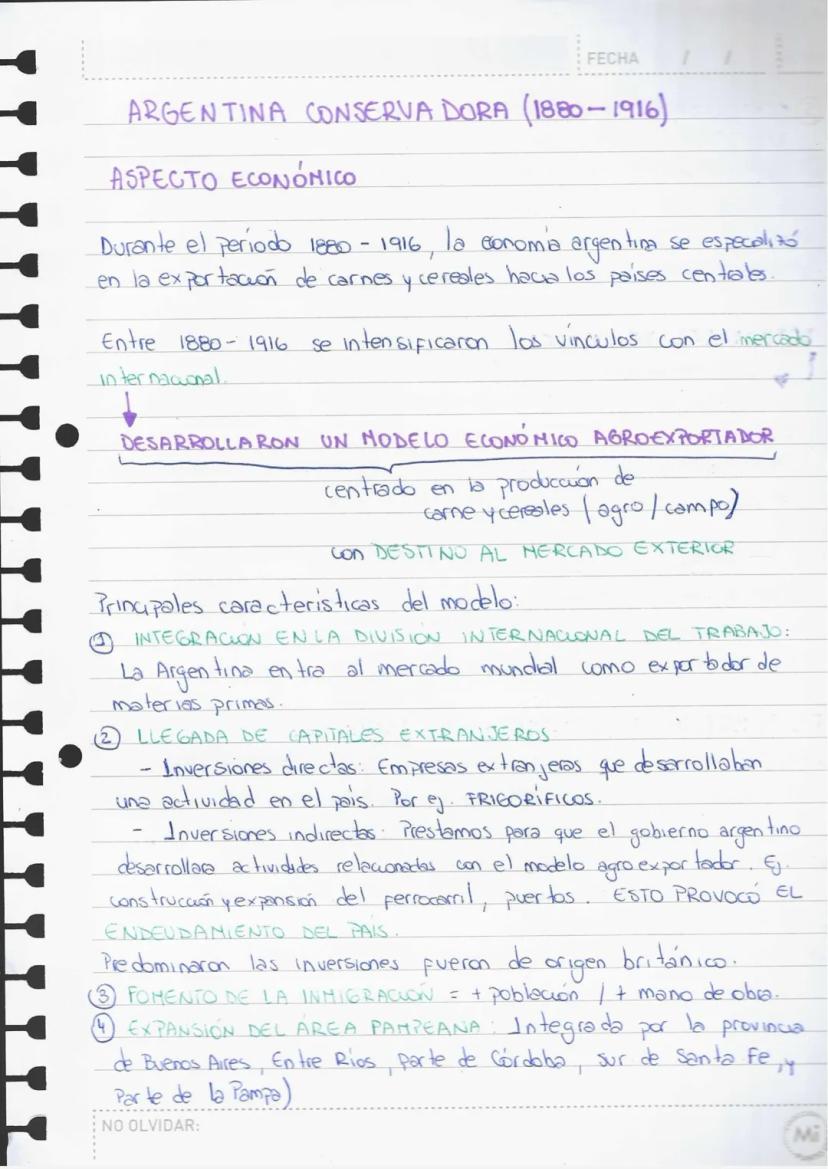 FECHA / /
ARGENTINA CONSERVADORA (1880-1916)
ASPECTO ECONÓMICO
Durante el período 1880-1916, la economía argentina se especializó
en la exportación de carnes y cereales hacia los países centrales.
Entre 1880-1916 se intensificaron los vínculos con el mercado
internacional.
DESARROLLARON UN MODELO ECONÓMICO AGROEXPORTADOR
centrado en la producción de
carne y cereales (agro/campo)
con DESTINO AL MERCADO EXTERIOR
Principales características del modelo:
① INTEGRACION EN LA DIVISION INTERNACIONAL DEL TRABAJO:
La Argentina entra al mercado mundial como exportador de
materias primas.
② LLEGADA DE CAPITALES EXTRANJEROS
- Inversiones directas: Empresas extranjeras que desarrollaban
una actividad en el país. Por ej. FRIGORÍFICOS.
- Inversiones indirectas: Prestamos para que el gobierno argentino
desarrollara actividades relacionadas con el modelo agroexportador. Ej.
construcción y expansión del ferrocarril, puertos. ESTO PROVOCÓ EL
ENDEUDAMIENTO DEL PAÍS.
Predominaron las inversiones fueron de origen británico.
③ FOMENTO DE LA INMIGRACIÓN = + población / + mano de obra.
④ EXPANSIÓN DEL ÁREA PAMPEANA: Integrada por la provincia
de Buenos Aires, Entre Ríos, parte de Córdoba, sur de Santa Fe, y
Parte de la Pampa)
NO OLVIDAR:
Mi